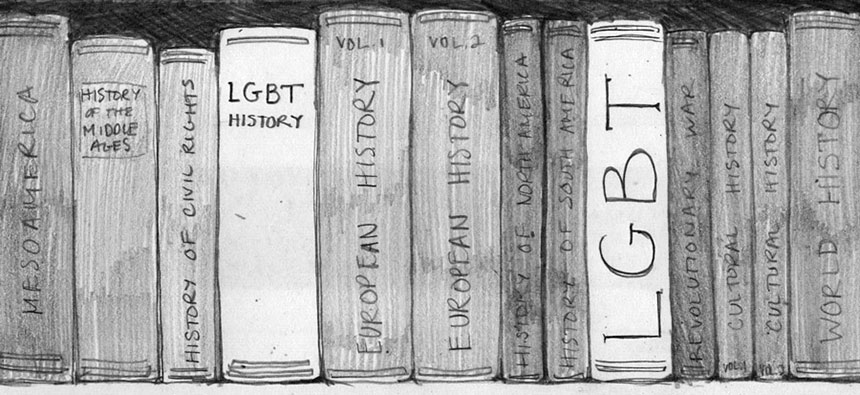 MESOAMERICA
HISTORY
OF THE
MIDDLE
AGES
HISTORY OF CIVIL RIGHTS
LGBT
HISTORY
VOL. 1
EUROPEAN HISTORY
VOL. 2
EUROPEAN HISTORY
HISTORY OF NORTH AMERICA
HISTORY OF SOUTH AMERICA
LGBT
REVOLUTIONARY WAR
CULTURAL HISTORY
VOL. 1
CULTURAL HISTORY
VOL. 2
WORLD HISTORY